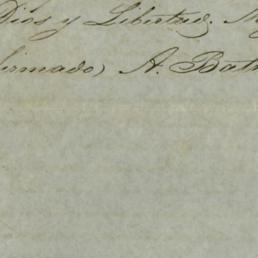 Dios y Libertad. M
firmado) A. Batr